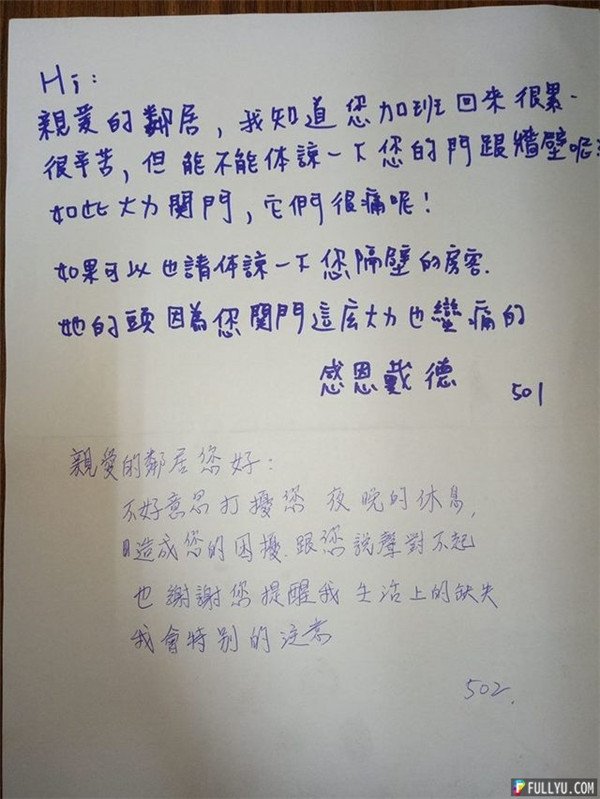 Hi:
親愛的鄰居，我知道您加班回來很累、
很辛苦，但能不能体諒一下您的門跟牆壁呢?
如此大力関門，它們很痛呢！
如果可以也請体諒一下您隔壁的房客.
她的頭因為您関門這広大力也蠻痛的
感恩戴德
501
親愛的鄰居您好：
不好意思打擾您 夜晚的休息,
造成您的困擾.跟您說聲對不起
也謝謝您提醒我 生活上的缺失
我會特別的注意
502.
FULLYU.COM